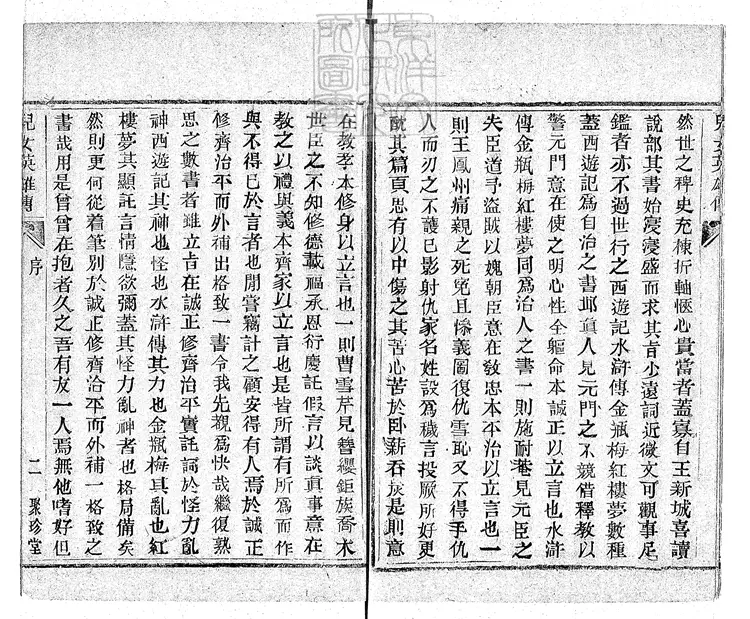 兒女英雄傳
然世之稗史充棟折軸愜心貴當者蓋寡自王新城喜讀
說部其書始寖寖盛而求其旨少遠詞近微文可觀事足
鑑者亦不過世行之西遊記水滸傳金瓶梅紅樓夢數種
蓋西遊記爲自治之書邱眞人見元門之不競借釋敎以
警元門意在使之明心性全軀命本誠正以立言也水滸
傳金瓶梅紅樓夢同爲治人之書一則施耐菴見元臣之
失臣道予盜賊以媿朝臣意在敎忠本平治以立言也一
則王鳳州痛親之死冤且慘義圖復仇雪恥又不得手仇
人而刃之不護已影射仇家名姓設爲穢言投厥所好更
酖其篇頁思有以中傷之其苦心苦於臥薪吞炭是則意
在敎孝本修身以立言也一則曹雪芹見簪纓鉅族喬木
世臣之不知修德載福承恩衍慶託假言以談眞事意在
敎之以禮與義本齊家以立言也是皆所謂有所爲而作
與不得已於言者也閒嘗竊計之顧安得有人焉於誠正
修齊治平而外補出格致一書令我先覩爲快哉繼復熟
思之數書者雖立旨在誠正修齊治平實託詞於怪力亂
神西遊記其神也怪也水滸傳其力也金瓶梅其亂也紅
樓夢其顯託言情隱欲彌蓋其怪力亂神者也格局備矣
然則更何從着筆別於誠正修齊治平而外補一格致之
書哉用是曾曾在抱者久之吾有友一人焉無他嗜好但
兒女英雄傳 序 二 聚珍堂